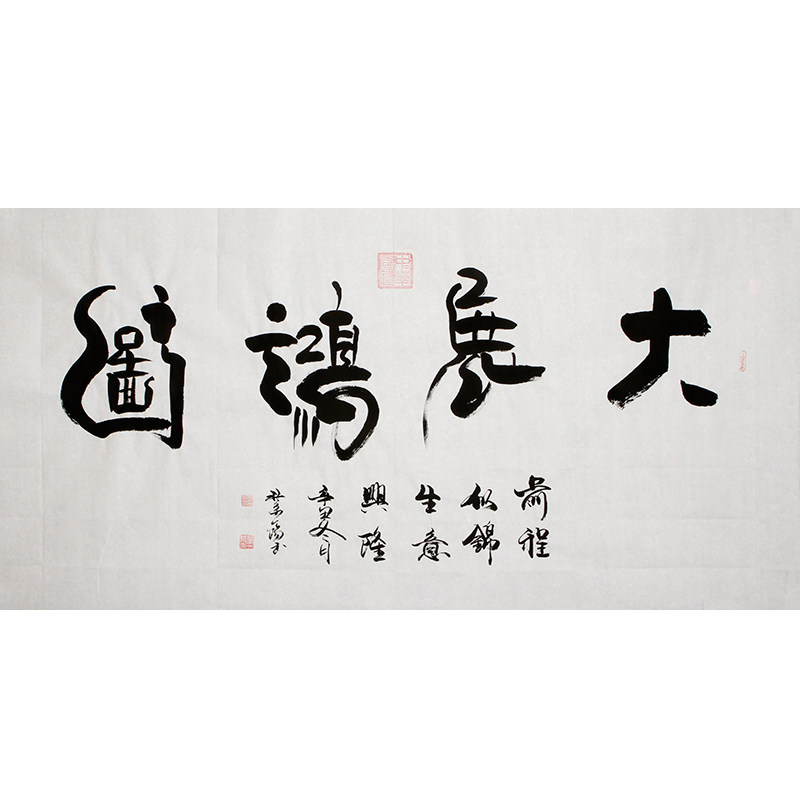 大展鴻圖
前程
似錦
生意
興隆
辛丑冬月